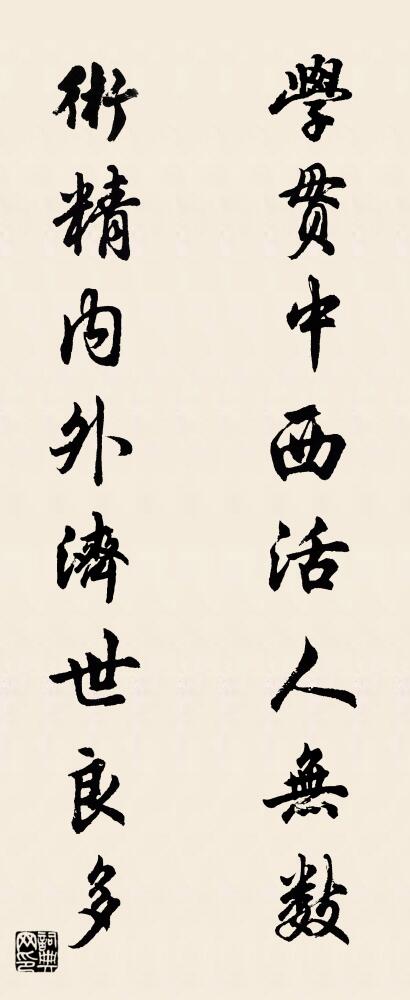 學貫中西活人無數
術精內外濟世良多
詞典网印